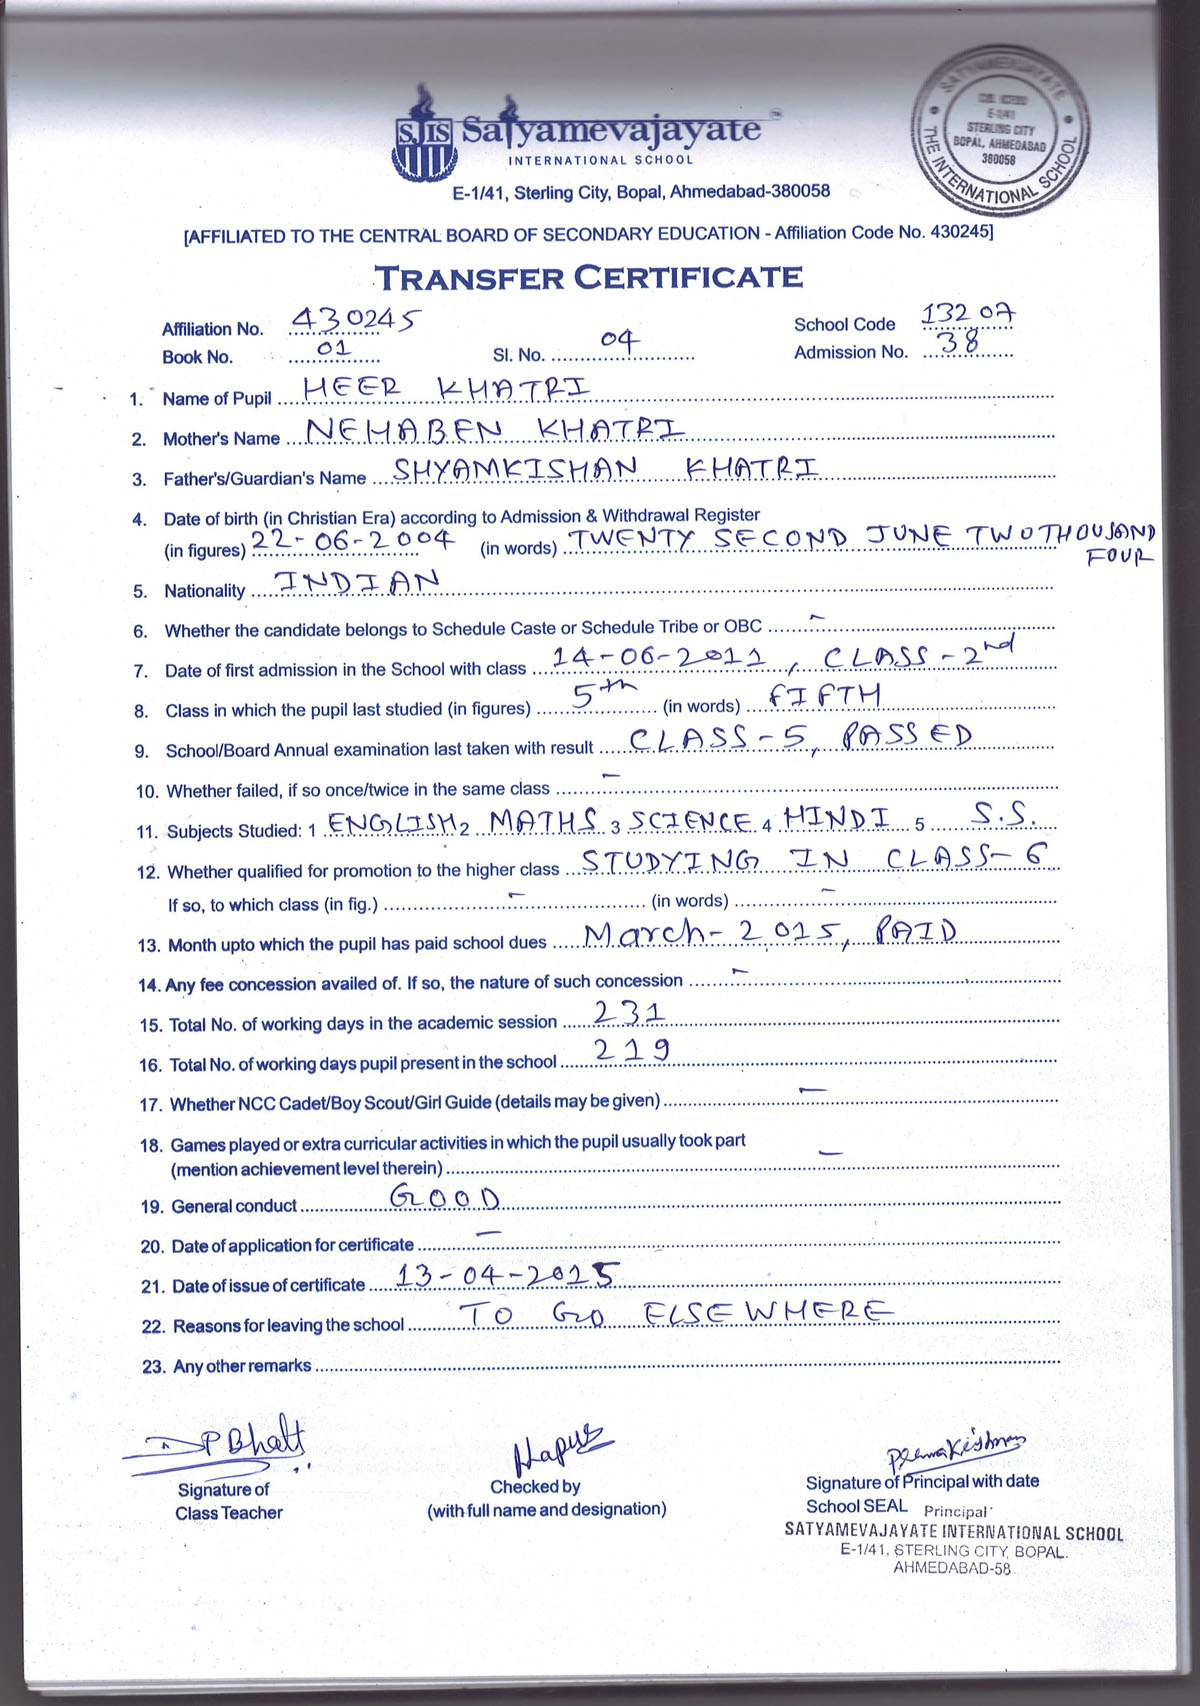 SJIS Satyamevajayate
INTERNATIONAL SCHOOL
E-1/41, Sterling City, Bopal, Ahmedabad-380058
SATYAMEVAJAYATE
E-1/41
STERLING CITY
BOPAL, AHMEDABAD
380058
THE INTERNATIONAL SCHOOL
[AFFILIATED TO THE CENTRAL BOARD OF SECONDARY EDUCATION - Affiliation Code No. 430245]
TRANSFER CERTIFICATE
Affiliation No. 430245 School Code 13207
Book No. 01 Sl. No. 04 Admission No. 38
1. Name of Pupil HEER KHATRI
2. Mother's Name NEHABEN KHATRI
3. Father's/Guardian's Name SHYAMKISHAN KHATRI
4. Date of birth (in Christian Era) according to Admission & Withdrawal Register
(in figures) 22-06-2004 (in words) TWENTY SECOND JUNE TWO THOUSAND
FOUR
5. Nationality INDIAN
6. Whether the candidate belongs to Schedule Caste or Schedule Tribe or OBC -
7. Date of first admission in the School with class 14-06-2011, CLASS-2nd
8. Class in which the pupil last studied (in figures) 5th (in words) FIFTH
9. School/Board Annual examination last taken with result CLASS-5, PASSED
10. Whether failed, if so once/twice in the same class -
11. Subjects Studied: 1 ENGLISH 2 MATHS 3 SCIENCE 4 HINDI 5 S.S.
12. Whether qualified for promotion to the higher class STUDYING IN CLASS-6
If so, to which class (in fig.) - (in words) -
13. Month upto which the pupil has paid school dues March-2015, PAID
14. Any fee concession availed of. If so, the nature of such concession -
15. Total No. of working days in the academic session 231
16. Total No. of working days pupil present in the school 219
17. Whether NCC Cadet/Boy Scout/Girl Guide (details may be given) -
18. Games played or extra curricular activities in which the pupil usually took part
(mention achievement level therein) -
19. General conduct GOOD
20. Date of application for certificate -
21. Date of issue of certificate 13-04-2015
22. Reasons for leaving the school TO GO ELSEWHERE
23. Any other remarks
DP Bhatt
Signature of
Class Teacher
Checked by
(with full name and designation)
Signature of Principal with date
School SEAL Principal
SATYAMEVAJAYATE INTERNATIONAL SCHOOL
E-1/41, STERLING CITY, BOPAL.
AHMEDABAD-58.